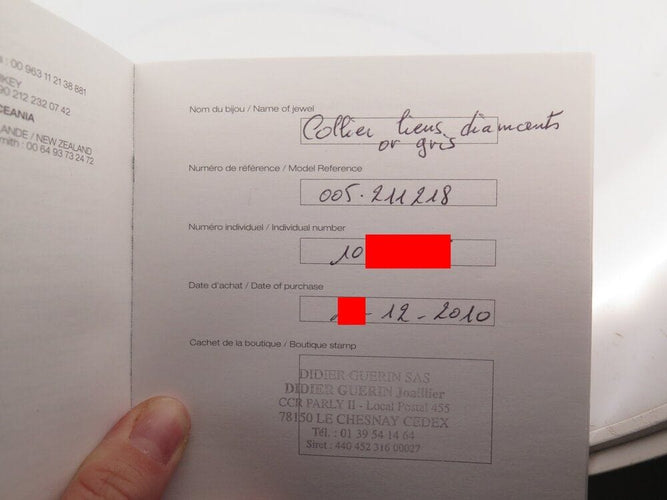 : 00 963 11 21 38 881
KEY
90 212 232 07 42
CEANIA
LANDE / NEW ZEALAND
mith : 00 64 93 73 24 72
Nom du bijou / Name of jewel
Collier liens diamants
or gris
Numéro de référence / Model Reference
005.211218
Numéro individuel / Individual number
10
Date d'achat / Date of purchase
- 12 - 2010
Cachet de la boutique / Boutique stamp
DIDIER GUERIN SAS
DIDIER GUERIN Joaillier
CCR PARLY II - Local Postal 455
78150 LE CHESNAY CEDEX
Tél. : 01 39 54 14 64
Siret : 440 452 316 00027